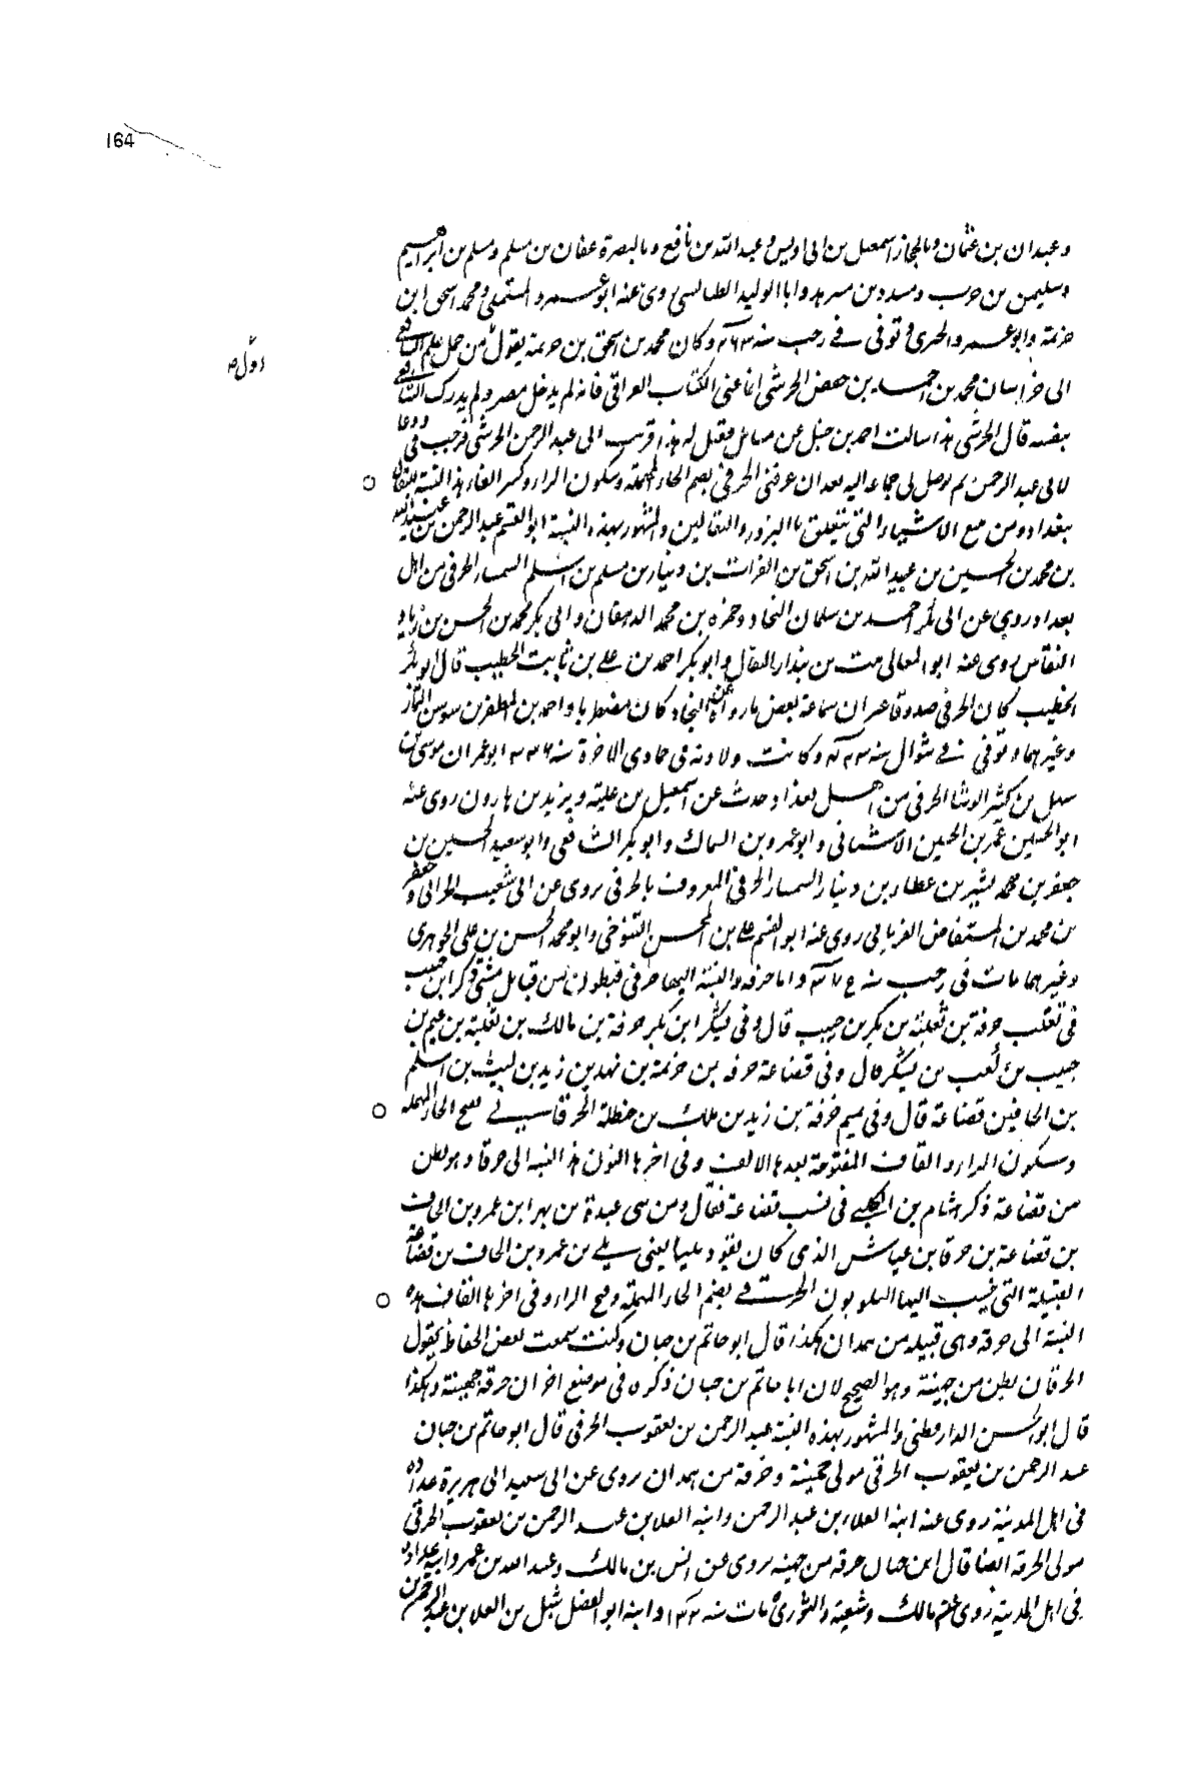 164
وعبدان بن عثمان وبالحجاز اسمعيل بن ابى اويس وعبد الله بن نافع وبالبصرة عفان بن مسلم ومسلم بن ابراهيم
وسليمن بن حرب ومسدد بن مسرهد وابا الوليد الطيالسى روى عنه ابو عمرو المستملى ومحمد بن اسحق ابن
خزيمة وابو عمرو الحرى وتوفى فى رجب سنه وكان محمد بن اسحق بن خزيمة يقول من حمل علم الشافعى
اول
الى خراسان محمد بن احمد بن حفص الحرشى انما عنى الكتاب العراقى فانه لم يدخل مصر ولم يدرك الشافعى
بنفسه قال الحرشى هذا سالت احمد بن حنبل عن مسائل فقيل له هذا قريب ابى عبد الرحمن الحرشى فرحب بى ودعا
لابى عبد الرحمن ثم اوصل لى حاجة اليه بعد ان عرفنى الحرفى بضم الحاء المهملة وسكون الراء وكسر الفاء هذا النسبة للبقال
ببغداد ومن يبيع الاشياء التى تتعلق باالبزور والبقالين والمشهور بهذه النسبة ابو القسم عبد الرحمن بن عبيد الله
بن محمد بن الحسين بن عبيد الله بن اسحق بن الفرات بن دينار بن مسلم بن اسلم السمسار الحرفى من اهل
بغداد روى عن ابى بكر احمد بن سلمان النجاد وحمزه بن محمد الدهقان وابى بكر محمد بن الحسن بن زياد
النقاش روى عنه ابو المعالى ثابت بن بندار البقال وابو بكر احمد بن على بن ثابت الخطيب قال ابو بكر
الخطيب كان الحرفى صدوقا غير ان سماعه لبعض ما رواه عن النجاد كان مضطربا واحمد بن المظفر بن سوسن التمار
وغيرهما وتوفى فى شوال سنه وكانت ولادته فى جمادى الاخرة سنه ٣٣٦ ابو عمران موسى بن
سهل بن كثير الوشا الحرفى من اهل بغداد حدث عن اسمعيل بن علية ويزيد بن هارون روى عنه
ابو الحسين عمر بن الحسين الاشنانى وابو عمرو بن السماك وابو بكر الشافعى وابو سعيد الحسين بن
جعفر بن محمد بشير بن عطار بن دينار السمسار الحرفى المعروف بالحرفى روى عن ابى شعيب الحرانى وجعفر
بن محمد بن المستفاض الفريابى روى عنه ابو القسم على بن المحسن التنوخى وابو محمد الحسن بن على الجوهرى
وغيرهما مات فى رجب سنه واما حرفه والنسبة اليها حرفى فبطون من قبايل شتى ذكر ابن حبيب
فى تغلب حرفة بن ثعلبة بن بكر بن حبيب قال وفى يشكر ابن بكر حرفة بن مالك بن ثعلبة بن غنم بن
حبيب بن كعب بن يشكر قال وفى قضاعة حرفه بن خزيمة بن نهد بن زيد بن ليث بن اسلم
بن الحاف بن قضاعة قال وفى تميم حرفة بن زيد بن مالك بن حنظلة الحرقانى فى بفتح الحاء المهمله
وسكون الراء والقاف المفتوحة بعدها الالف وفى اخرها النون هذه النسبه الى حرقا وهو بطن
من قضاعة ذكر هشام بن الكلبى فى نسب قضاعة فقال ومن بنى عبدة بن بهرا بن عمرو بن الحاف
بن قضاعة بن حرقا بن عياش الذى كان يقود بليا يعنى بلى بن عمرو بن الحاف بن قضاعة
القبيلة التى ينسب اليها البلويون الحرقى بضم الحاء المهملة وفتح الراء وفى اخرها القاف هذه
النسبة الى حرقة وهى قبيله من همدان هكذا قال ابو حاتم بن حبان وكنت سمعت بعض الحفاظ يقول
الحرقان بطن من جهينة وهو الصحيح لان ابا حاتم بن حبان ذكره فى موضع اخر ان حرقة جهينة وهكذا
قال ابو الحسن الدارقطنى والمشهور بهذه النسبة عبد الرحمن بن يعقوب الحرقى قال ابو حاتم بن حبان
عبد الرحمن بن يعقوب الحرقى مولى جهينة وحرقة من همدان روى عن ابى سعيد ابى هريرة عداده
فى اهل المدينة روى عنه ابنه العلاء بن عبد الرحمن وابنه العلا بن عبد الرحمن بن يعقوب الحرقى
مولى الحرقه ايضا قال ابن حبان حرقة من جهينه يروى عن انس بن مالك وعبد الله بن عمر وابيه عداده
فى اهل المدينة روى عنه مالك وشعبة والثورى مات سنه ١٣٢ وابنه ابو الفضل شبل بن العلا بن عبد الرحمن